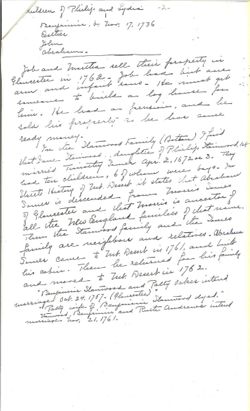 Children of Philip and Lydia -2-
Benjamin, b. Nov. 17, 1736
Esther
John
Abraham.
Job and Martha sell their property in
Gloucester in 1762. Job had but one
arm and infant sons. He must get
someone to build a log house for
him. He has no pension, and he
sold his property to have some
ready money.
In the Stanwood Family (Bolton) I find
that Jane Stanwood, daughter of Philip Stanwood
married Timothy Somes Apr. 2, 1672 or 3. They
had ten children, 6 of whom were boys. In
Street History of Mt. Desert it states that Abraham
Somes is descended from a Morris Somes
of Gloucester and that Morris is ancestor of
all the New England families of that name.
Thus the Stanwood family and the Somes
family are neighbors and relatives. Abraham
Somes came to Mt. Desert in 1761, and built
his cabin. Then he returned for his family
and moved to Mt. Desert in 1762.
"Benjamin Stanwood and Patty intend
marriage Oct. 24, 1757." (Gloucester)
"Patty wife of Benjamin Stanwood dyed."
Benjamin and Ruth Andrews intend
marriage Nov. 21, 1761.